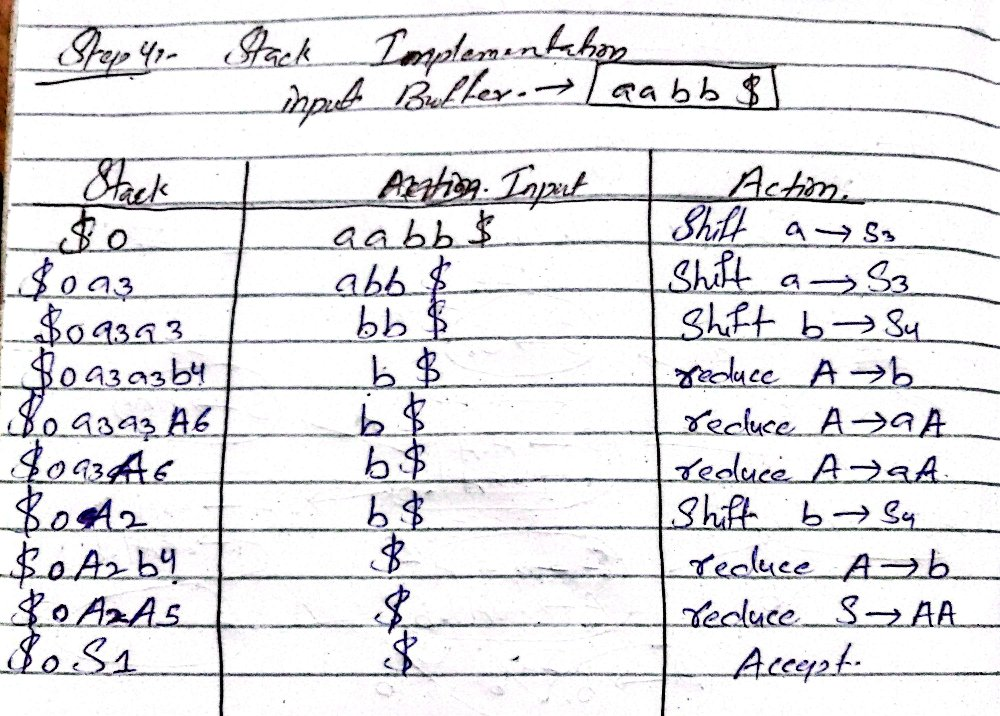 Step 4:- Stack Implementation
input Buffer. → aabb $
Stack Input Action.
$0 aabb $ Shift a → S3
$0a3 abb $ Shift a → S3
$0a3a3 bb $ Shift b → S4
$0a3a3b4 b $ reduce A → b
$0a3a3A6 b $ reduce A → aA
$0a3A6 b $ reduce A → aA.
$0A2 b $ Shift b → S4
$0A2b4 $ reduce A → b
$0A2A5 $ reduce S → AA
$0S1 $ Accept.